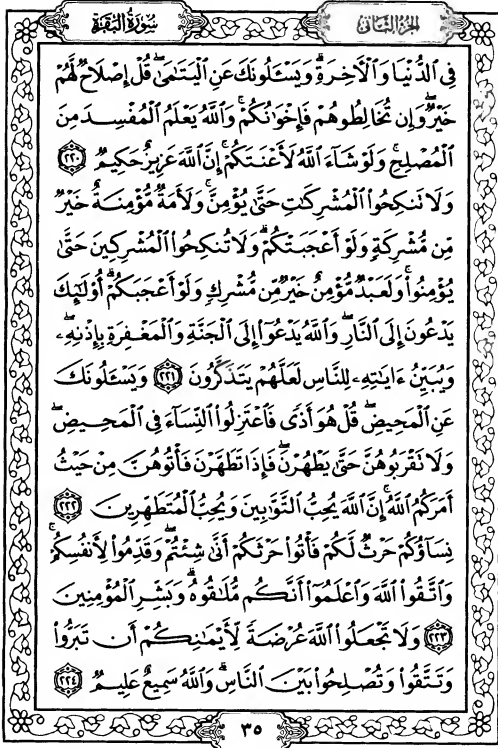 الجزء الثاني
سورة البقرة
فِي ٱلدُّنْيَا وَٱلْأَخِرَةِۗ وَيَسْـَٔلُونَكَ عَنِ ٱلْيَتَٰمَىٰۖ قُلْ إِصْلَاحٌ لَّهُمْ
خَيْرٌۖ وَإِن تُخَالِطُوهُمْ فَإِخْوَٰنُكُمْۚ وَٱللَّهُ يَعْلَمُ ٱلْمُفْسِدَ مِنَ
ٱلْمُصْلِحِۚ وَلَوْ شَآءَ ٱللَّهُ لَأَعْنَتَكُمْۚ إِنَّ ٱللَّهَ عَزِيزٌ حَكِيمٌ ٢٢٠
وَلَا تَنكِحُوا۟ ٱلْمُشْرِكَٰتِ حَتَّىٰ يُؤْمِنَّۚ وَلَأَمَةٌ مُّؤْمِنَةٌ خَيْرٌ
مِّن مُّشْرِكَةٍ وَلَوْ أَعْجَبَتْكُمْۗ وَلَا تُنكِحُوا۟ ٱلْمُشْرِكِينَ حَتَّىٰ
يُؤْمِنُوا۟ۚ وَلَعَبْدٌ مُّؤْمِنٌ خَيْرٌ مِّن مُّشْرِكٍ وَلَوْ أَعْجَبَكُمْۗ أُو۟لَٰٓئِكَ
يَدْعُونَ إِلَى ٱلنَّارِۖ وَٱللَّهُ يَدْعُوٓا۟ إِلَى ٱلْجَنَّةِ وَٱلْمَغْفِرَةِ بِإِذْنِهِۦۖ
وَيُبَيِّنُ ءَايَٰتِهِۦ لِلنَّاسِ لَعَلَّهُمْ يَتَذَكَّرُونَ ٢٢١ وَيَسْـَٔلُونَكَ
عَنِ ٱلْمَحِيضِۖ قُلْ هُوَ أَذًى فَٱعْتَزِلُوا۟ ٱلنِّسَآءَ فِي ٱلْمَحِيضِۖ
وَلَا تَقْرَبُوهُنَّ حَتَّىٰ يَطْهُرْنَۖ فَإِذَا تَطَهَّرْنَ فَأْتُوهُنَّ مِنْ حَيْثُ
أَمَرَكُمُ ٱللَّهُۚ إِنَّ ٱللَّهَ يُحِبُّ ٱلتَّوَّٰبِينَ وَيُحِبُّ ٱلْمُتَطَهِّرِينَ ٢٢٢
نِسَآؤُكُمْ حَرْثٌ لَّكُمْ فَأْتُوا۟ حَرْثَكُمْ أَنَّىٰ شِئْتُمْۖ وَقَدِّمُوا۟ لِأَنفُسِكُمْۚ
وَٱتَّقُوا۟ ٱللَّهَ وَٱعْلَمُوٓا۟ أَنَّكُم مُّلَٰقُوهُۗ وَبَشِّرِ ٱلْمُؤْمِنِينَ
٢٢٣ وَلَا تَجْعَلُوا۟ ٱللَّهَ عُرْضَةً لِّأَيْمَٰنِكُمْ أَن تَبَرُّوا۟
وَتَتَّقُوا۟ وَتُصْلِحُوا۟ بَيْنَ ٱلنَّاسِۗ وَٱللَّهُ سَمِيعٌ عَلِيمٌ ٢٢٤
٣٥